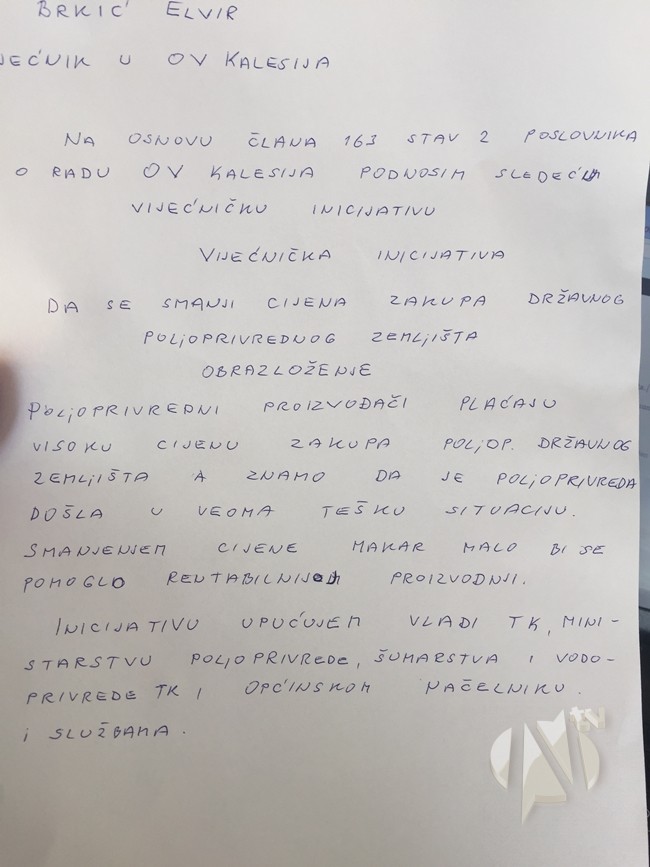 BRKIĆ ELVIR
JEĆNIK U OV KALESIJA
NA OSNOVU ČLANA 163 STAV 2 POSLOVNIKA
O RADU OV KALESIJA PODNOSIM SLEDEĆU
VIJEĆNIČKU INICIJATIVU
VIJEĆNIČKA INICIJATIVA
DA SE SMANJI CIJENA ZAKUPA DRŽAVNOG
POLJOPRIVREDNOG ZEMLJIŠTA
OBRAZLOŽENJE
POLJOPRIVREDNI PROIZVOĐAČI PLAĆAJU
VISOKU CIJENU ZAKUPA POLJOP. DRŽAVNOG
ZEMLJIŠTA A ZNAMO DA JE POLJOPRIVREDA
DOŠLA U VEOMA TEŠKU SITUACIJU.
SMANJENJEM CIJENE MAKAR MALO BI SE
POMOGLO RENTABILNIJOJ PROIZVODNJI.
INICIJATIVU UPUĆUJEM VLADI TK, MINI-
STARSTVU POLJOPRIVREDE, ŠUMARSTVA I VODO-
PRIVREDE TK I OPĆINSKOM NAČELNIKU.
I SLUŽBAMA.
NTV